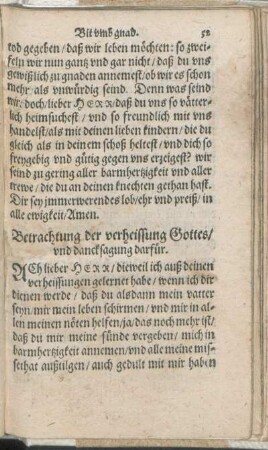 Bit vmb gnad. 58
tod gegeben / daß wir leben möchten: so zwei-
feln wir nun gantz vnd gar nicht / daß du vns
gewißlich zu gnaden annemest / ob wir es schon
mehr als vnwürdig seind. Denn was seind
wir doch / lieber HERR / daß du vns so vätter-
lich heimsuchest / vnd so freundlich mit vns
handelst / als mit deinen lieben kindern / die du
gleich als in deinem schoß heltest / vnd dich so
freygebig vnd gütig gegen vns erzeigest? wir
seind zu gering aller barmhertzigkeit vnd aller
trewe / die du an deinen knechten gethan hast.
Dir sey jmmerwerendes lob / ehr vnd preiß / in
alle ewigkeit / Amen.
Betrachtung der verheissung Gottes /
vnd dancksagung darfür.
ACh lieber HERR / dieweil ich auß deinen
verheissungen gelernet habe / wenn ich dir
dienen werde / daß du alsdann mein vatter
seyn / mir mein leben schirmen / vnd mir in al-
len meinen nöten helfen / ja / das noch mehr ist /
daß du mir meine sünde vergeben / mich in
barmhertzigkeit annemen / vnd alle meine mis-
sethat außtilgen / auch gedult mit mir haben